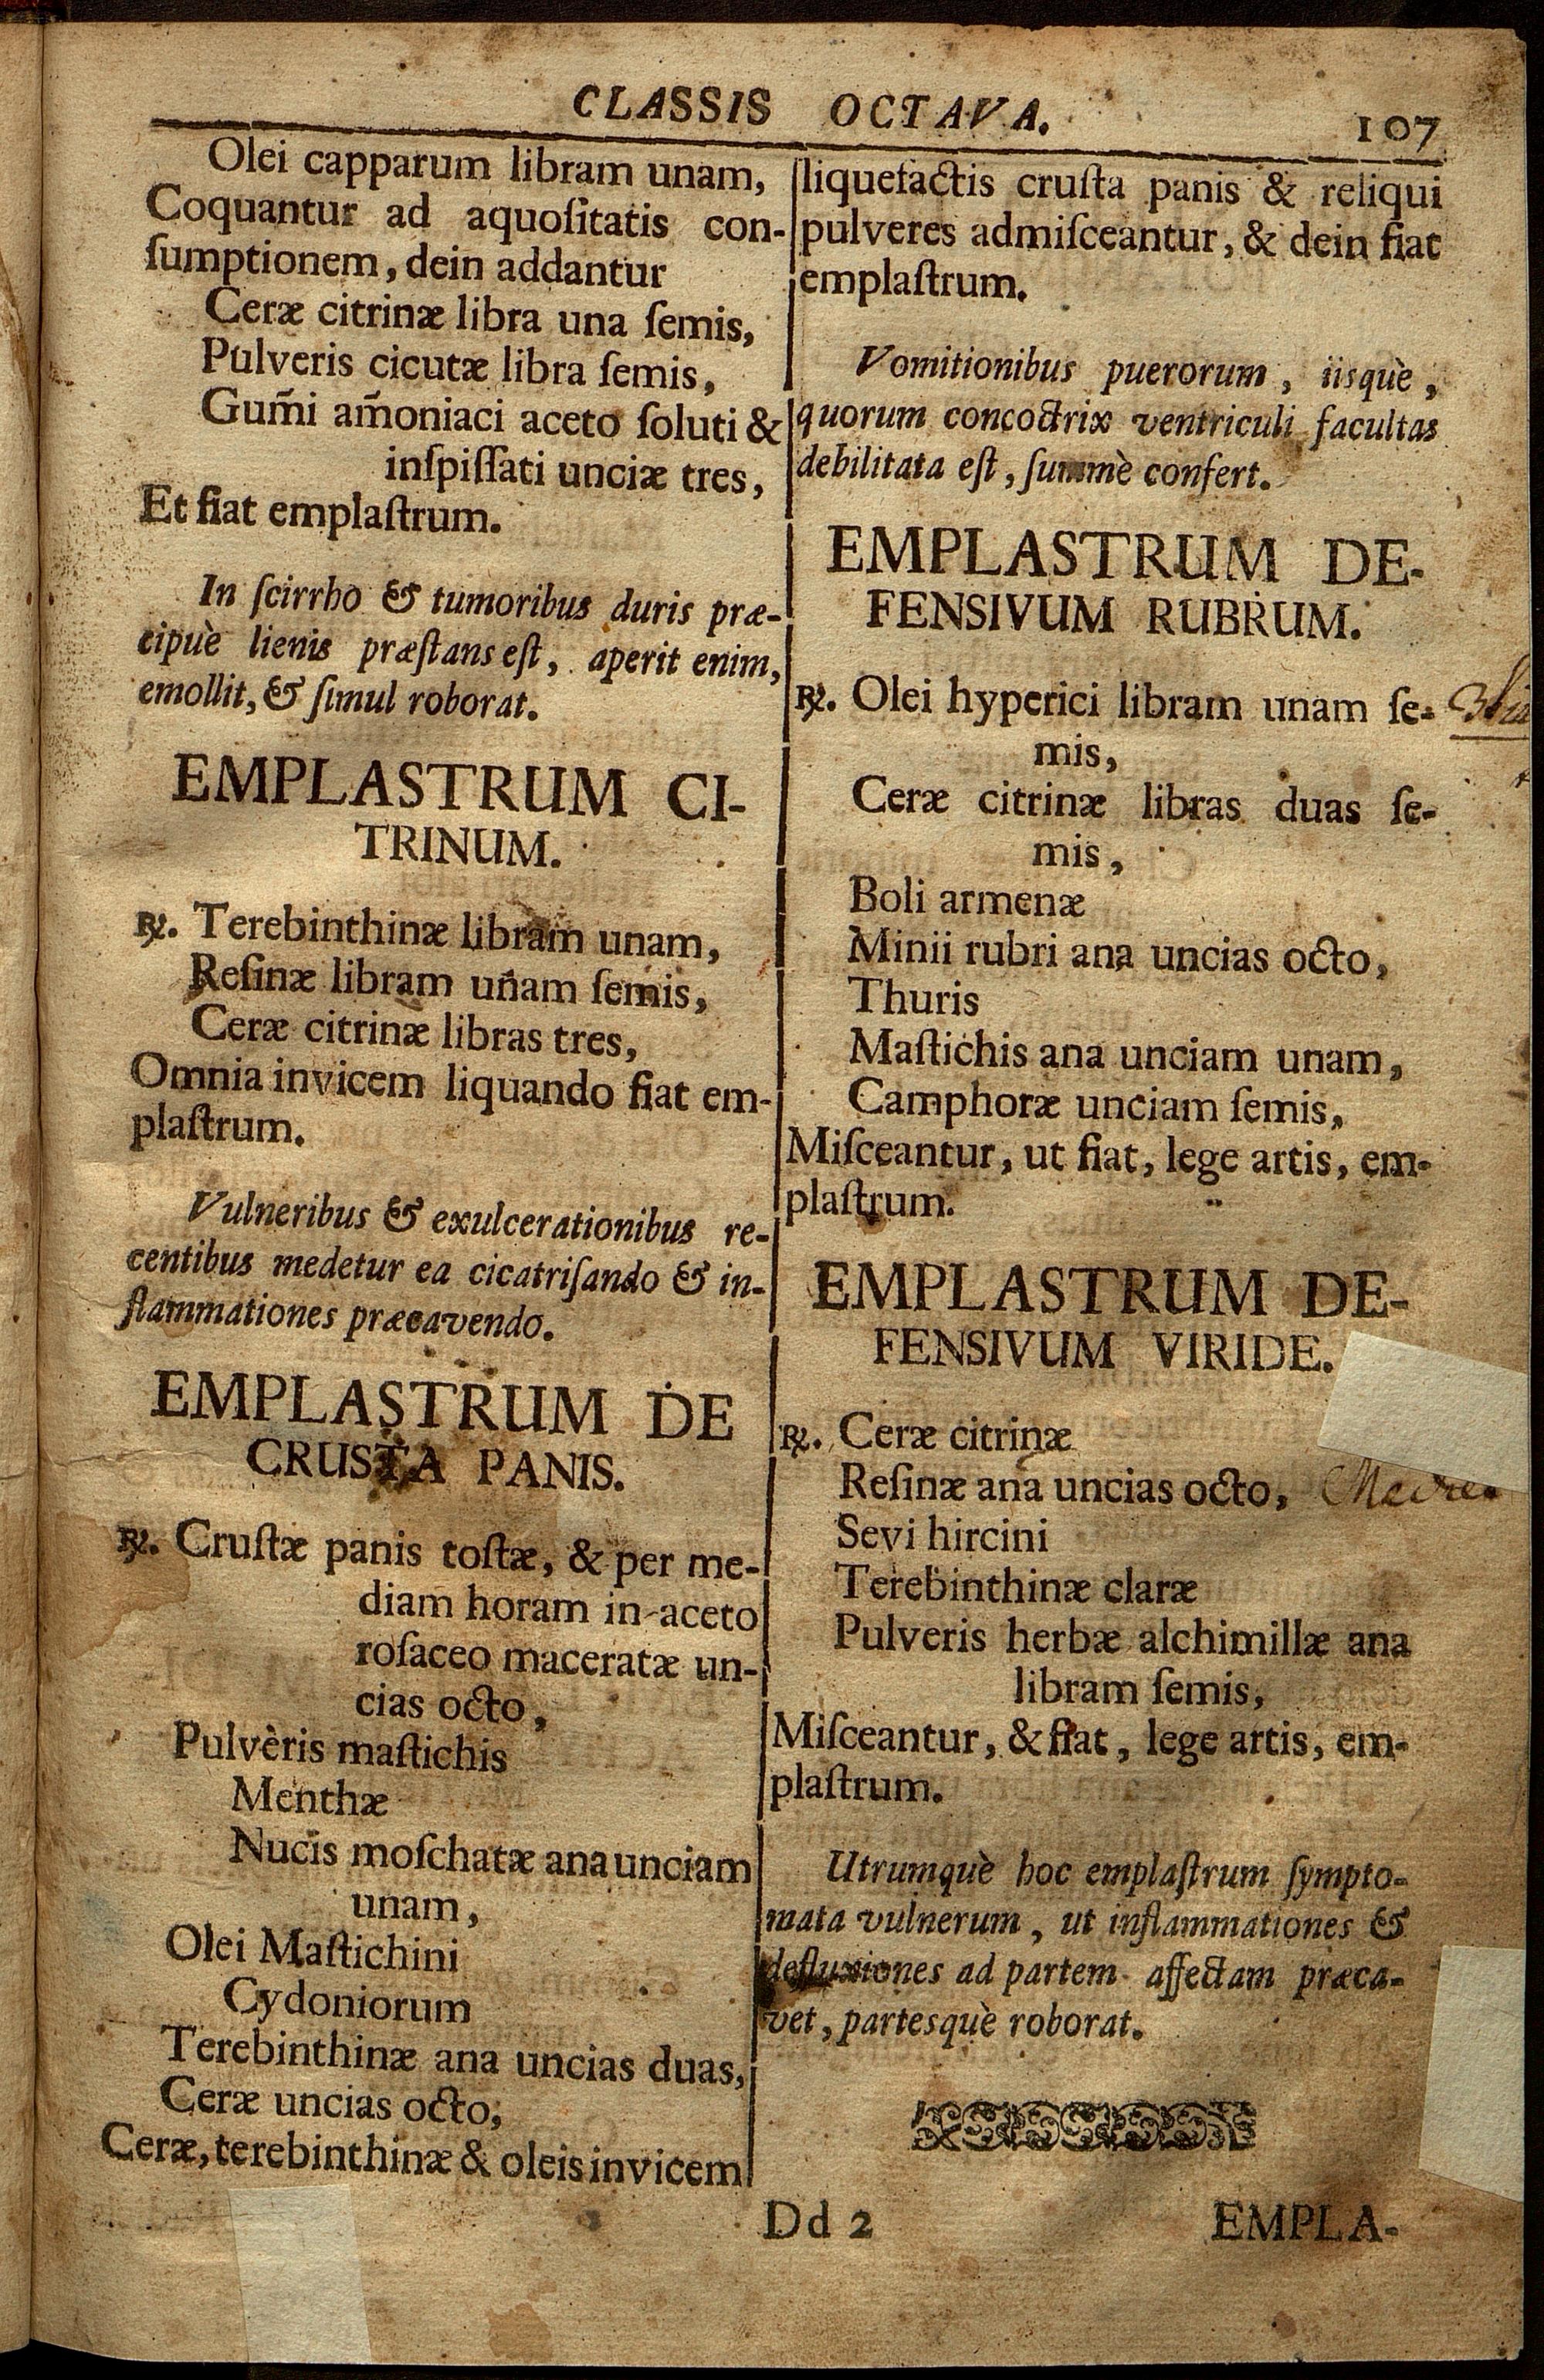 CLASSIS OCTAVA. 107
Olei capparum libram unam,
Coquantur ad aquoſitatis con-
ſumptionem, dein addantur
Ceræ citrinæ libra una ſemis,
Pulveris cicutæ libra ſemis,
Gum̃i am̃oniaci aceto ſoluti &
inſpiſſati unciæ tres,
Et fiat emplaſtrum.
In ſcirrho & tumoribus duris præ-
cipuè lienis præſtans eſt, aperit enim,
emollit, & ſimul roborat.
EMPLASTRUM CI-
TRINUM.
℞. Terebinthinæ libram unam,
Reſinæ libram unam ſemis,
Ceræ citrinæ libras tres,
Omnia invicem liquando fiat em-
plaſtrum.
Vulneribus & exulcerationibus re-
centibus medetur ea cicatriſando & in-
flammationes præcavendo.
EMPLASTRUM DE
CRUSTA PANIS.
℞. Cruſtæ panis toſtæ, & per me-
diam horam in aceto
roſaceo maceratæ un-
cias octo,
Pulvèris maſtichis
Menthæ
Nucis moſchatæ ana unciam
unam,
Olei Maſtichini
Cydoniorum
Terebinthinæ ana uncias duas,
Ceræ uncias octo,
Ceræ, terebinthinæ & oleis invicem
liquefactis cruſta panis & reliqui
pulveres admiſceantur, & dein fiat
emplaſtrum.
Vomitionibus puerorum, iisquè,
quorum concoctrix ventriculi facultas
debilitata eſt, ſummè confert.
EMPLASTRUM DE-
FENSIVUM RUBRUM.
℞. Olei hyperici libram unam ſe-
mis,
Ceræ citrinæ libras duas ſe-
mis,
Boli armenæ
Minii rubri ana uncias octo,
Thuris
Maſtichis ana unciam unam,
Camphoræ unciam ſemis,
Miſceantur, ut fiat, lege artis, em-
plaſtrum.
EMPLASTRUM DE-
FENSIVUM VIRIDE.
℞. Ceræ citrinæ
Reſinæ ana uncias octo,
Sevi hircini
Terebinthinæ claræ
Pulveris herbæ alchimillæ ana
libram ſemis,
Miſceantur, & fiat, lege artis, em-
plaſtrum.
Utrumquè hoc emplaſtrum ſympto-
mata vulnerum, ut inflammationes &
defluxiones ad partem affectam præca-
vet, partesquè roborat.
Dd 2 EMPLA-